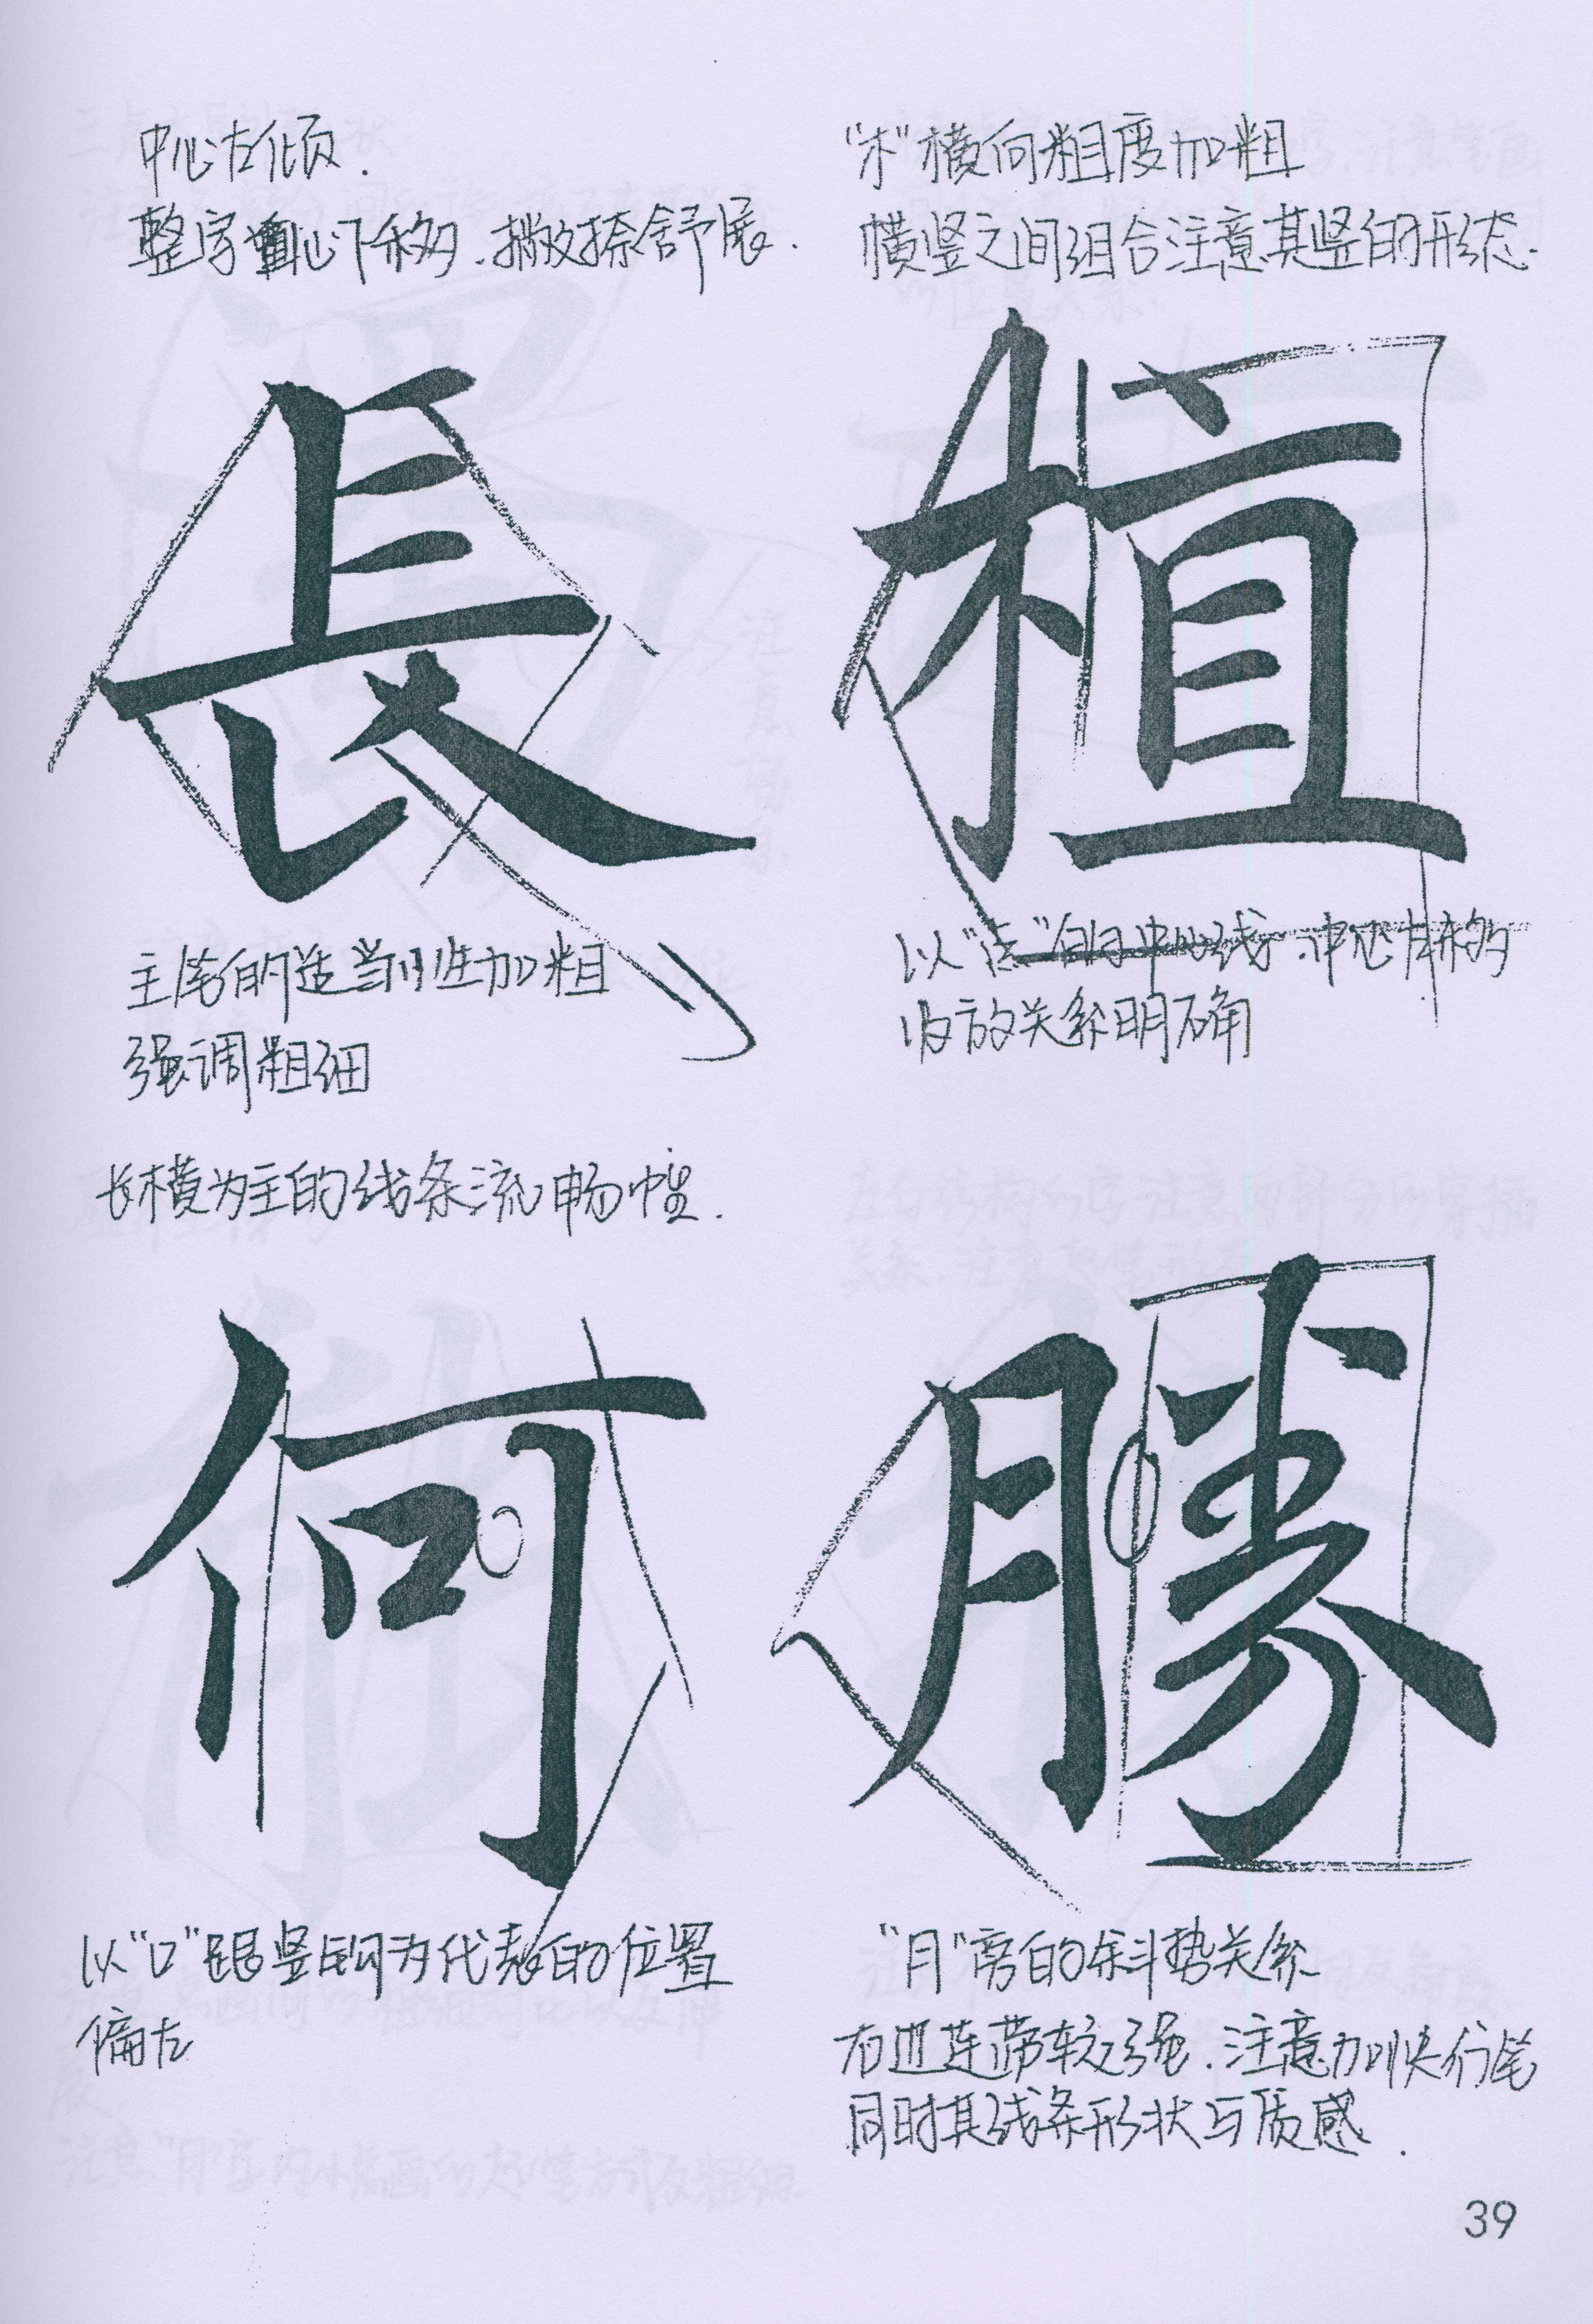 中心左倾.
整字重心下移.撇捺舒展.
長
主笔的适当性加粗
强调粗细
"木"横向粗度加粗
横竖之间组合注意其竖的形态.
植
以"点"的中心线.中心左移
收放关系明确
长横为主的线条流畅性.
何
以"口"跟竖钩为代表的位置
偏左
勝
"月"旁的斜势关系
右边连带较强.注意加快行笔
同时其线条形状与质感.
39